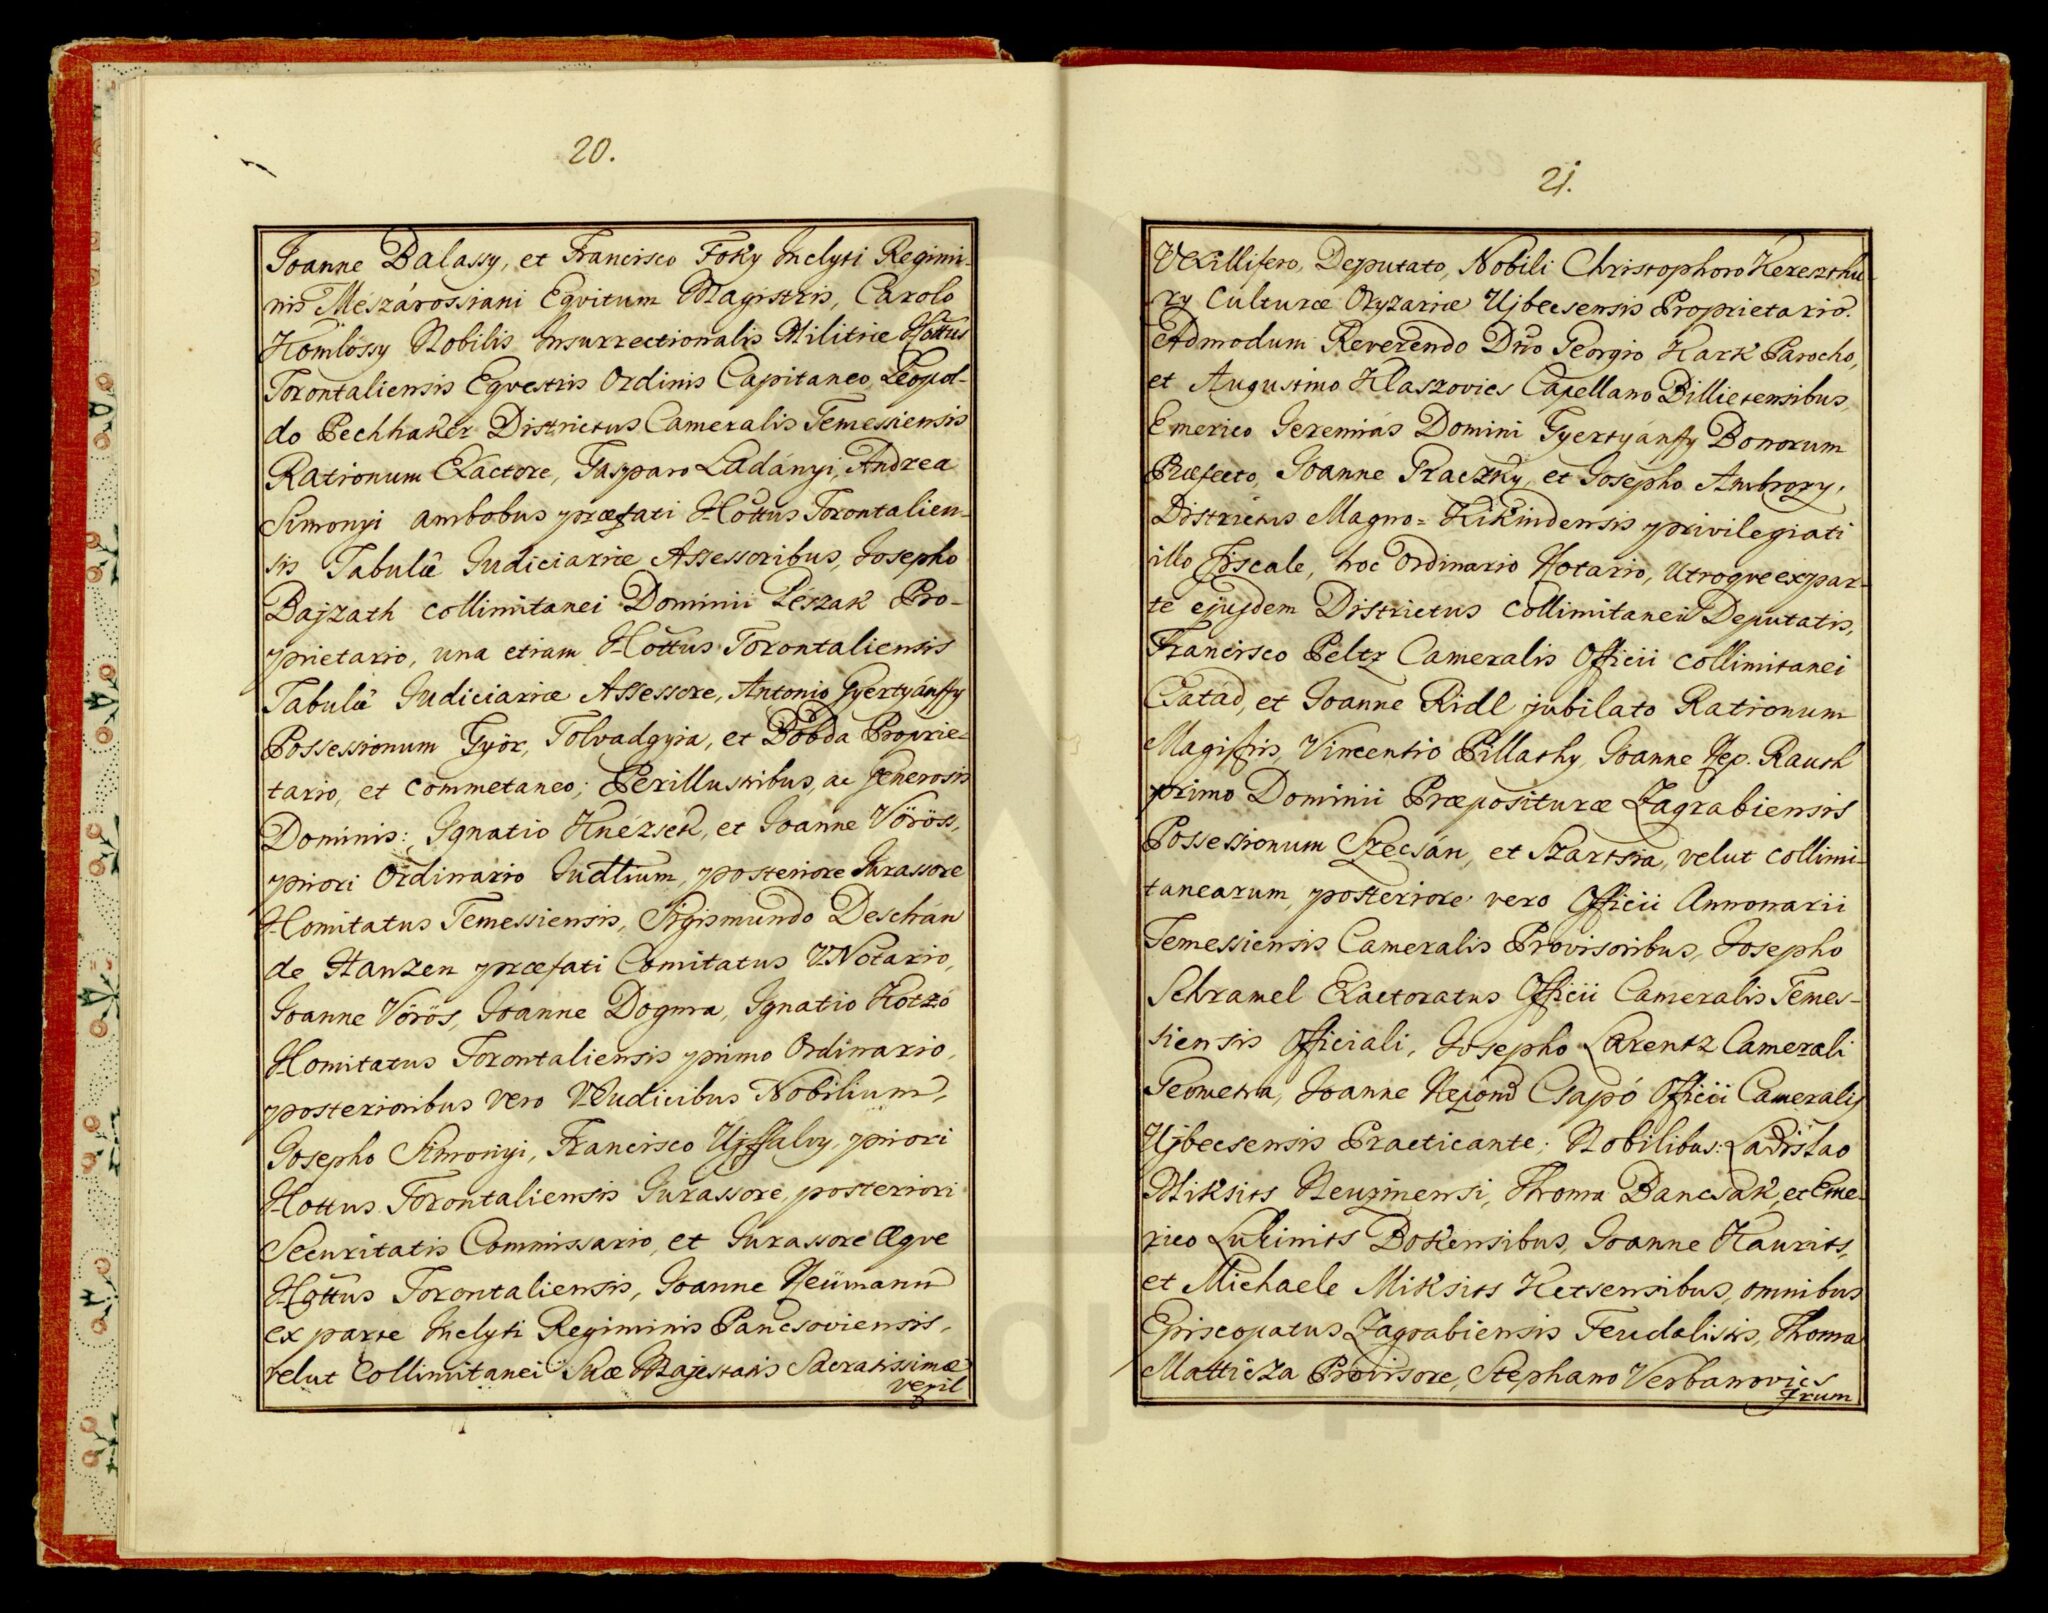 20.
Joanne Balassy, et Francisco Foky Inclyti Regimi-
nis Mészárossiani Eqvitum Magistris, Carolo
Homlossy Nobilis Insurrectionalis Militiæ Cottus
Torontaliensis Eqvestris Ordinis Capitaneo, Leopol-
do Pechhaker Districtus Cameralis Temessiensis
Rationum Exactore, Gasparo Ladányi, Andrea
Simonyi ambobus præfati Cottus Torontalien-
sis Tabulæ Judiciariæ Assessoribus, Josepho
Bajzath collimitanei Dominii Leszak Pro-
prietario, una etiam Cottus Torontaliensis
Tabulæ Judiciariæ Assessore, Antonio Gyertyánffy
Possessionum Györ, Tolvadgyia, et Dobda Proprie-
tario, et commetaneo; Perillustribus, ac Generosis
Dominis: Ignatio Knézsek, et Joanne Vörös,
priori Ordinario Judlium, posteriore Jurassore
Comitatus Temessiensis, Sigismundo Deschán
de Hanzen præfati Comitatus V.Notario,
Joanne Vörös, Joanne Dogma, Ignatio Kotzó
Comitatus Torontaliensis primo Ordinario,
posterioribus vero V.Judicibus Nobilium,
Josepho Simonyi, Francisco Ujffalvy, priori
Cottus Torontaliensis Jurassore, posteriori
Securitatis Commissario, et Jurassore Æqve
Cottus Torontaliensis, Joanne Neümann
ex parte Inclyti Regiminis Pancsoviensis,
velut Collimitanei Suæ Majestatis Sacratissimæ
vexil
21.
Vexillifero, Deputato, Nobili Christophoro Kereszthu-
ry Culturæ Oryzariæ Ujbecsensis Proprietario.
Admodum Reverendo Dno Georgio Kark Parocho,
et Augustino Klaszovics Capellano Billietensibus,
Emerico Jeremiás Domini Gyertyánffy Bonorum
Præfecto, Joanne Traczky, et Josepho Ambrozy,
Districtus Magno-Kikindensis privilegiati
illo Fiscale, hoc Ordinario Notario, Utroqve ex par-
te ejusdem Districtus collimitanei Deputatis,
Francisco Peltz Cameralis Officii collimitanei
Csatád, et Joanne Ridl jubilato Rationum
Magistris, Vincentio Pillathy, Joanne Nep. Rauth
primo Dominii Præposituræ Zagrabiensis
Possessionum Szécsán, et Szartsia, velut collimi-
tanearum, posteriore vero Officii Annonarii
Temessiensis Cameralis Provisoribus, Josepho
Schramel Exactoratus Officii Cameralis Temes-
siensis Officiali, Josepho Lorentz Camerali
Geometra, Joanne Csapó Officii Cameralis
Ujbecsensis Practicante; Nobilibus: Ladislao
Miksits Neuzinensi, Thoma Bancsak, et Eme-
rico Lukinits Bokensibus, Joanne Kaurits,
et Michaele Miksits Ketsensibus, omnibus
Episcopatus Zagrabiensis Feudalistis, Thoma
Matticza Provisore, Stephano Verbanovics
Frum